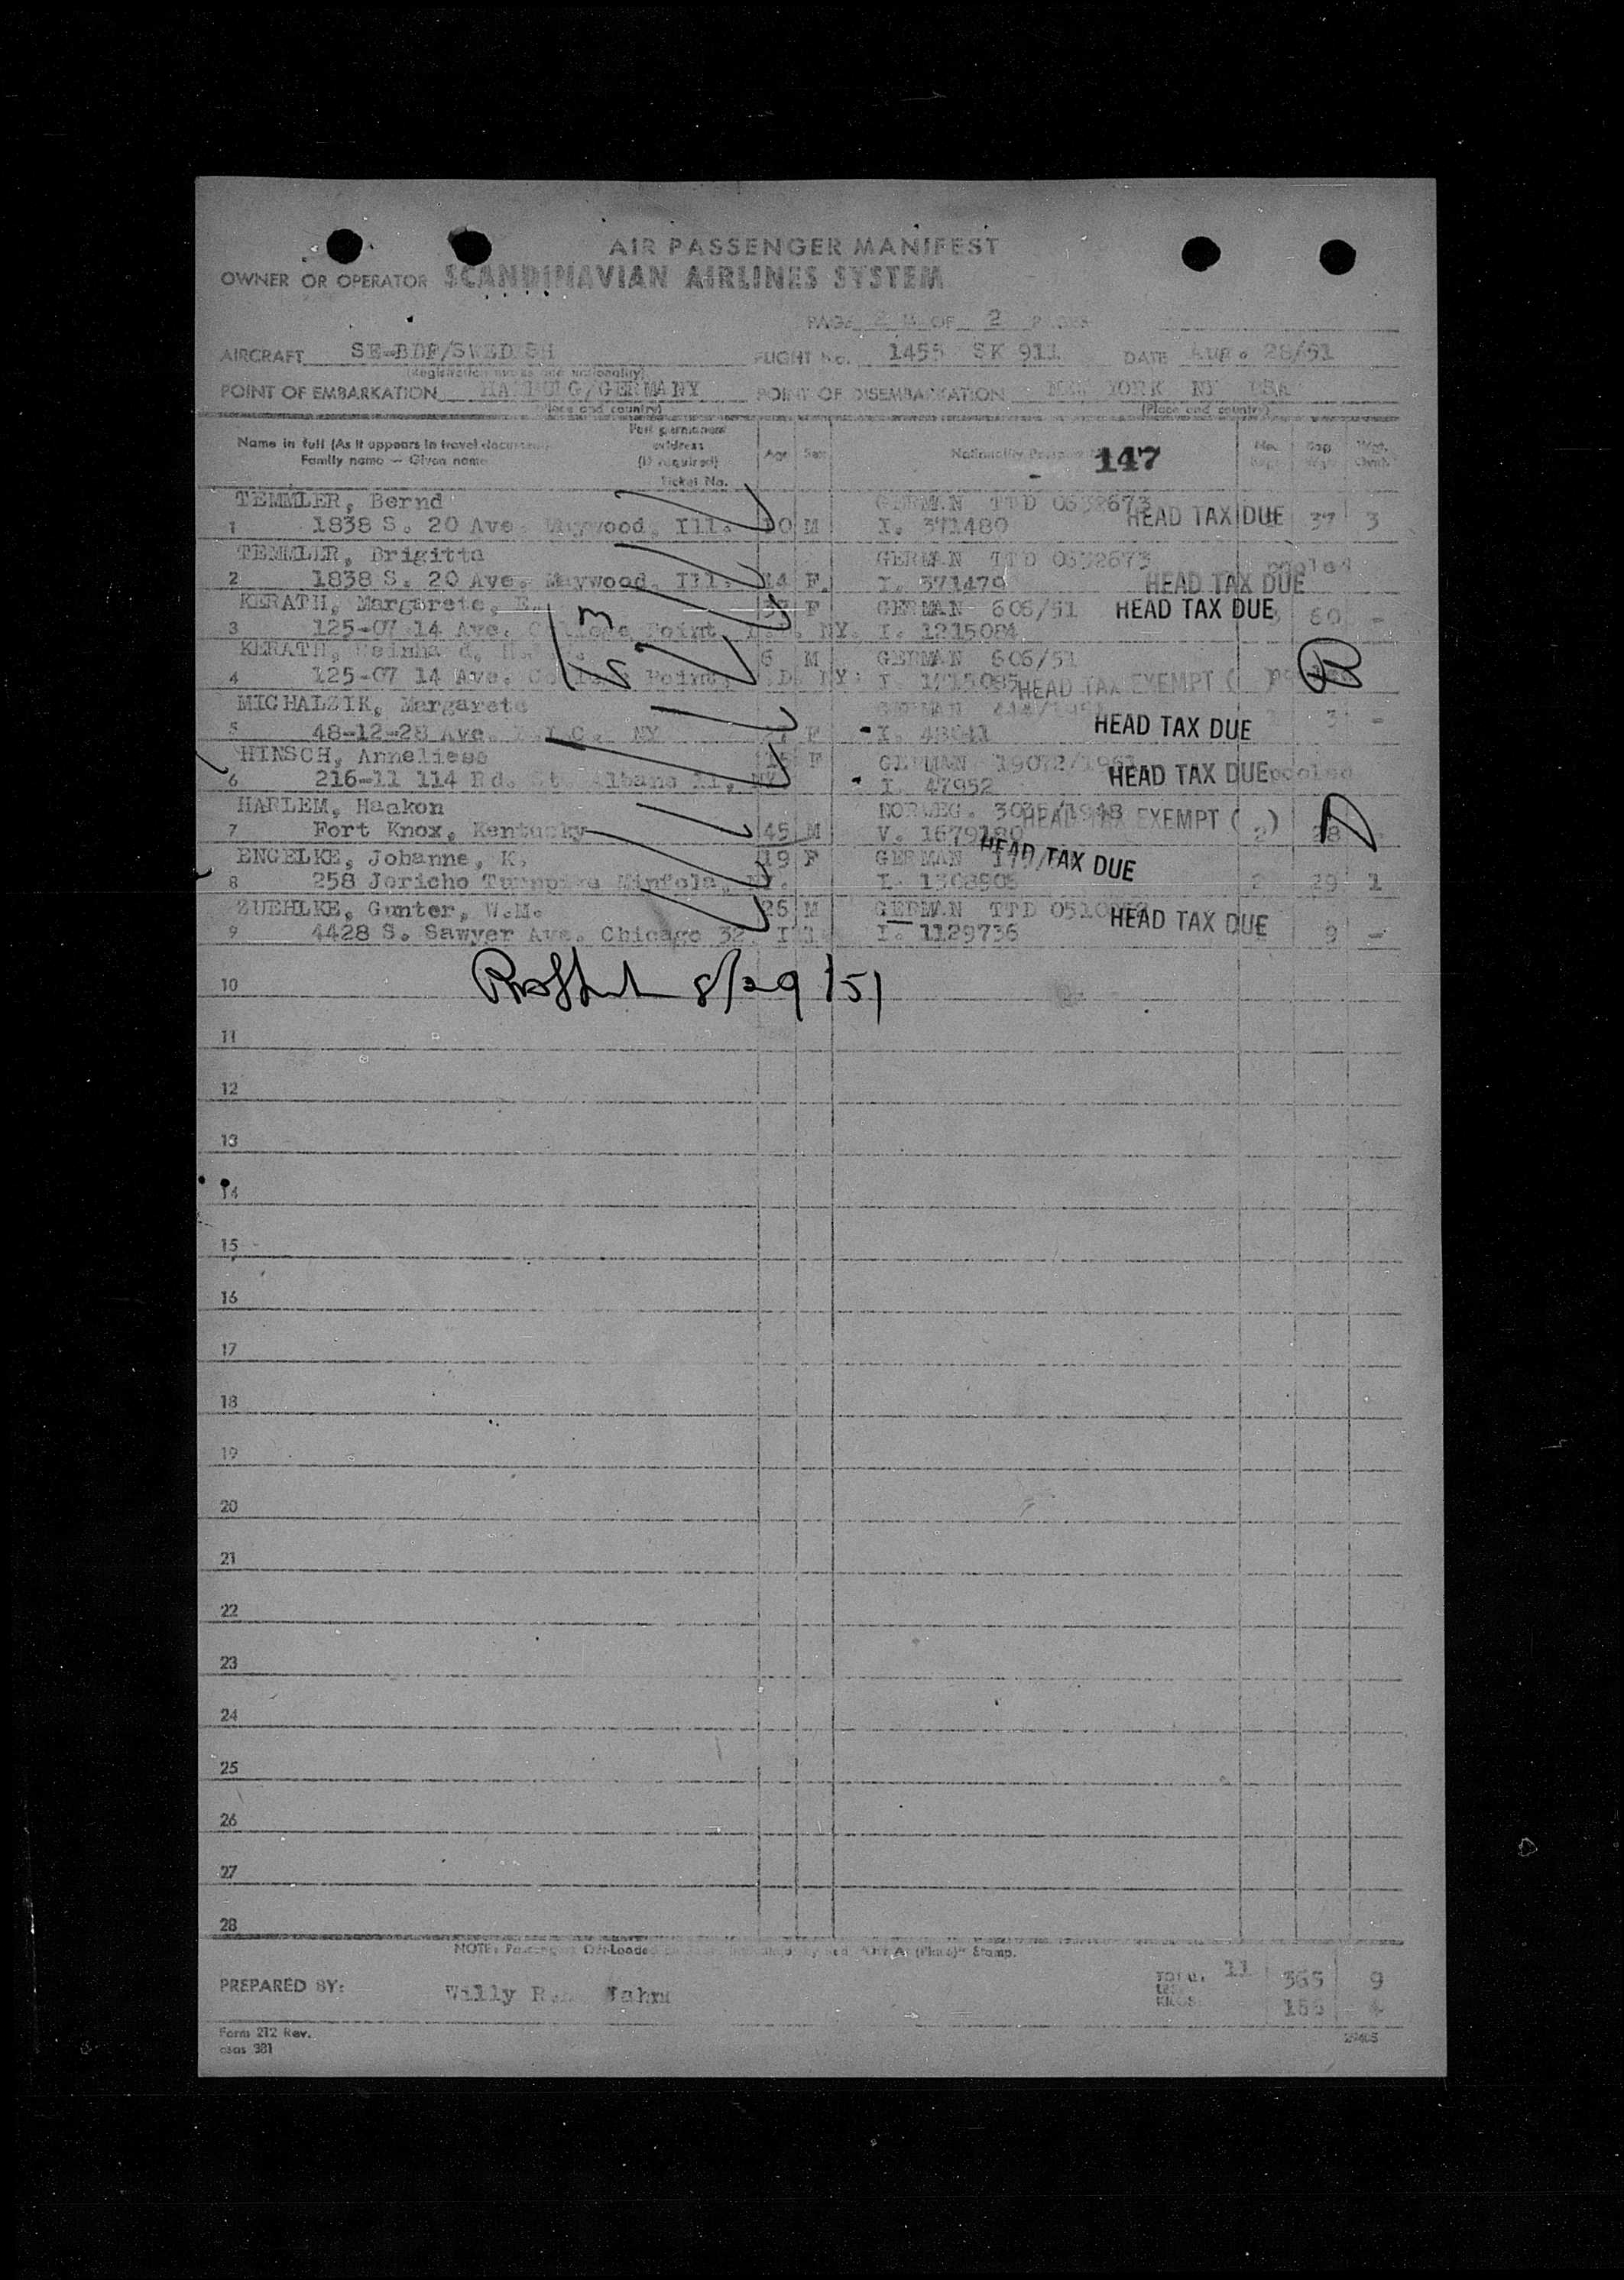 AIR PASSENGER MANIFEST
OWNER OR OPERATOR SCANDINAVIAN AIRLINES SYSTEM
PAGE 2 OF 2 PAGES
AIRCRAFT SE-BDF/SWEDISH FLIGHT No. 1455 SK 911 DATE Aug. 28/51
(Registration marks and nationality)
POINT OF EMBARKATION HAMBURG/GERMANY POINT OF DISEMBARKATION NEW YORK NY USA
(Place and country) (Place and country)
Name in full (As it appears in travel document)
Family name — Given name
Full permanent
address
(if required)
Ticket No.
Age Sex Nationality 147 No. Bag Wgt.
TEMMLER, Bernd GERMAN TTD 0532673
1 1838 S. 20 Ave. Maywood, Ill. 10 M I. 371480 HEAD TAX DUE 37 3
TEMMLER, Brigitta GERMAN TTD 0532673 pooled
2 1838 S. 20 Ave. Maywood, Ill. 14 F. I. 371479 HEAD TAX DUE
KERATH, Margarete, E. F GERMAN 606/51 HEAD TAX DUE 60 -
3 125-07 14 Ave. College Point NY. I. 1215084
KERATH, 6 M GERMAN 606/51
4 125-07 14 Ave. College Point, NY. I. 1215085 HEAD TAX EXEMPT ( )
MICHALZIK, Margarete GERMAN
5 48-12-28 Ave. L.I.C. NY F I. 48641 HEAD TAX DUE -
HINSCH, Anneliese F GERMAN
6 216-11 114 Rd. St. Albans 11, NY. I. 47952 HEAD TAX DUE pooled
HARLEM, Haakon NORWEG. 3035/1948
7 Fort Knox, Kentucky 45 M V. 1679180 HEAD TAX EXEMPT ( ) 2
ENGELKE, Johanne, K. 19 F GERMAN HEAD TAX DUE
8 258 Jericho Turnpike Minfola, NY. I. 1308905 2 29 1
ZUEHLKE, Gunter, W.M. 26 M GERMAN TTD
9 4428 S. Sawyer Ave. Chicago 32, Ill I. 1129736 HEAD TAX DUE 9 -
10 8/29/51
11
12
13
14
15
16
17
18
19
20
21
22
23
24
25
26
27
28
NOTE: Passengers Off-Loaded Stamp.
PREPARED BY: Willy
TOTAL 11 365 9
KILOS
Form 212 Rev.